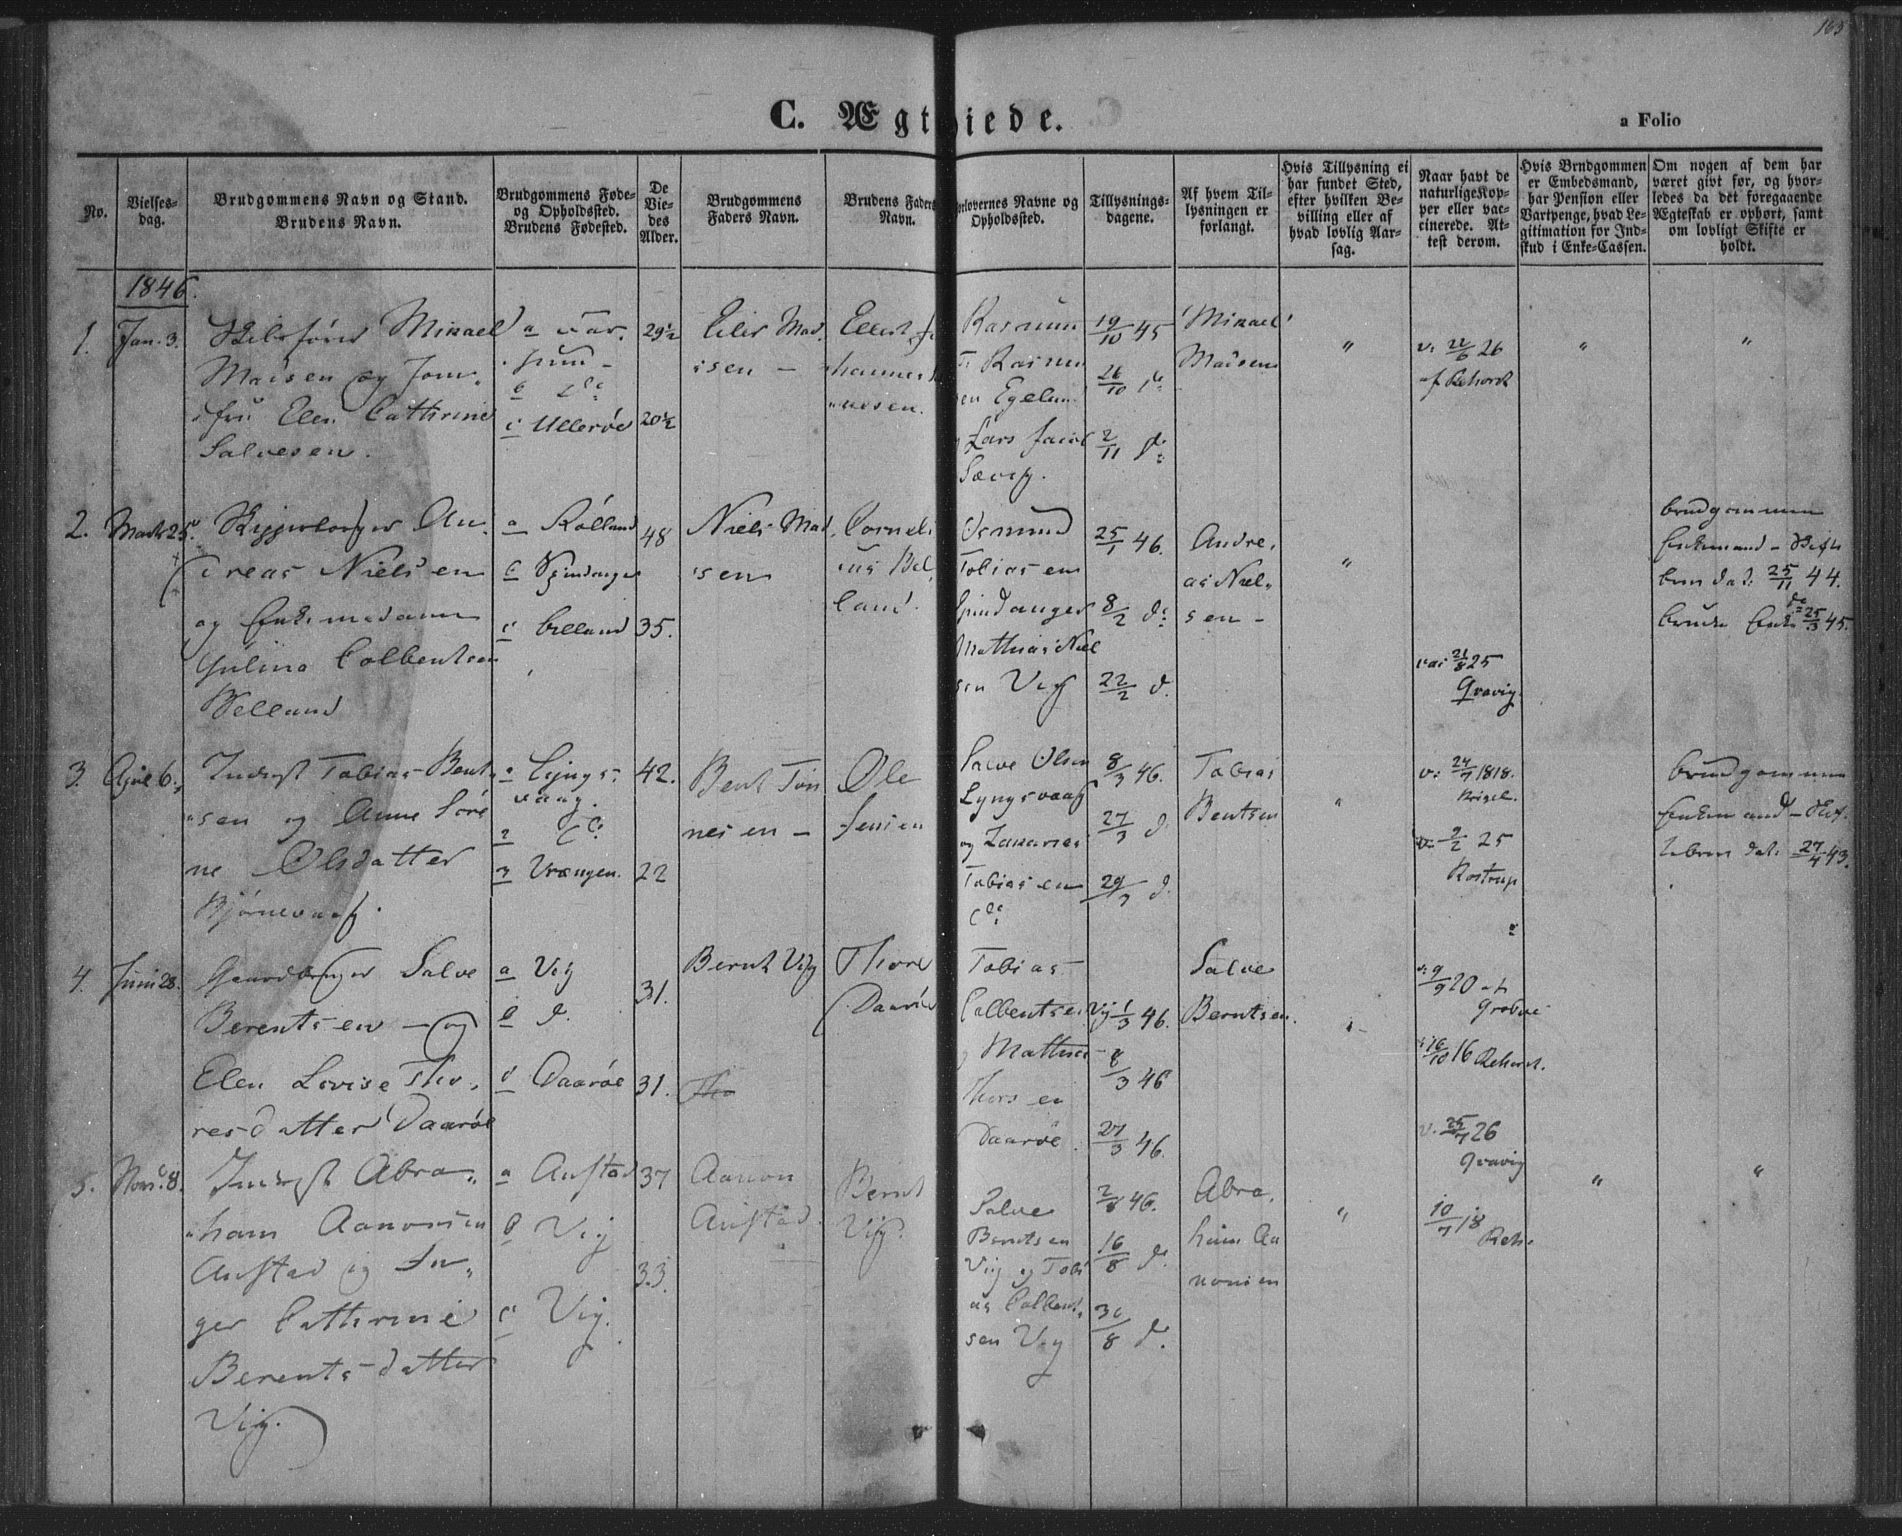 165
C. Ægteviede.
a Folio
No.
Vielses-
dag.
Brudgommens Navn og Stand.
Brudens Navn.
Brudgommens Føde-
og Opholdssted.
Brudens Fødested.
De
Vie-
des
Alder.
Brudgommens
Faders Navn.
Brudens Faders
Navn.
Forlovernes Navne og
Opholdssted.
Tillysnings-
dagene.
Af hvem Til-
lysningen er
forlangt.
Hvis Tillysning ei
har fundet Sted,
efter hvilken Be-
villing eller af
hvad lovlig Aar-
sag.
Naar havt de
naturlige Kop-
per eller vac-
cinerede. At-
test derom.
Hvis Brudgommen
er Embedsmand,
har Pension eller
Vartpenge, hvad Le-
gitimation for Ind-
skud i Enke-Cassen.
Om nogen af dem har
været givt før, og hvor-
ledes da det foregaaende
Ægteskab er ophørt, samt
om lovligt Skifte er
holdt.
1846.
1. Jan. 3.
Mikael
Madsen og Jom-
fru Elen Cathrine
Salvesen.
Ullerøe
29½
20½
Eiler Mad-
sen
Rasmus
Egeland
Lars Jacob
19/10 45
26/10 do
2/11 do
Mikael
Madsen
"
v: 22/6 26
af Rehordt
"
"
2. Marts 25.
An-
dreas Nielsen
og Enkemadame
Gulina Colbentsen
Belland
a Rølland
b Spindanger
c Belland
48
35.
Niels Mad-
sen
Corneli-
us Bel-
land.
Osmund
Tobiasen
Spindanger
Mathias Niel-
sen Vig
25/1 46.
8/2 do
22/2 d.
Andre-
as Niel-
sen
"
vac 21/8 25
Gravig.
brudgommen
Enkemand
25/11 44.
bruden Enke 25/3 45.
3. April 6.
Tobias Bent-
sen og Anne Søri-
ne Olsdatter
Bjørnevaag.
a Lyngs-
vaag.
b do
c Vrangen.
42.
22
Bent Tøn-
nesen
Ole
Jensen
Salve Olsen
Lyngsvaag
og Zakarias
Tobiasen
do
8/3 46.
27/3 d.
29/3 d.
Tobias
Bentsen
"
v: 24/7 1818.
v: 9/2 25
Rostrup
brudgommen
Enkemand
27/4 43.
4. Juni 28.
Gaardbruger Salve
Berentsen og
Elen Lovise Tho-
resdatter Daarøe
a Vig
b d.
c Daarøe
31.
31.
Bernt Vig
Tho
Thore
Daarøe
Tobias
Colbentsen Vig
Mathias
Thorsen
Daarøe
1/3 46.
8/3 46
27/3 46.
Salve
Berntsen.
v: 9/9 20
16/10 16 Rehordt.
5. Nov. 8.
Abra-
ham Aanonsen
Austad og In-
ger Cathrine
Berentsdatter
Vig.
a Austad
b Vig
c Vig.
37
33
Aanon
Austad.
Bernt
Vig.
Salve
Berntsen
Vig og Tobi-
as Colbent-
sen Vig
2/8 46.
16/8 d.
30/8 d.
Abra-
ham Aa-
nonsen
"
v. 25/7 26
Gravig
10/7 18
Reh.
"
"